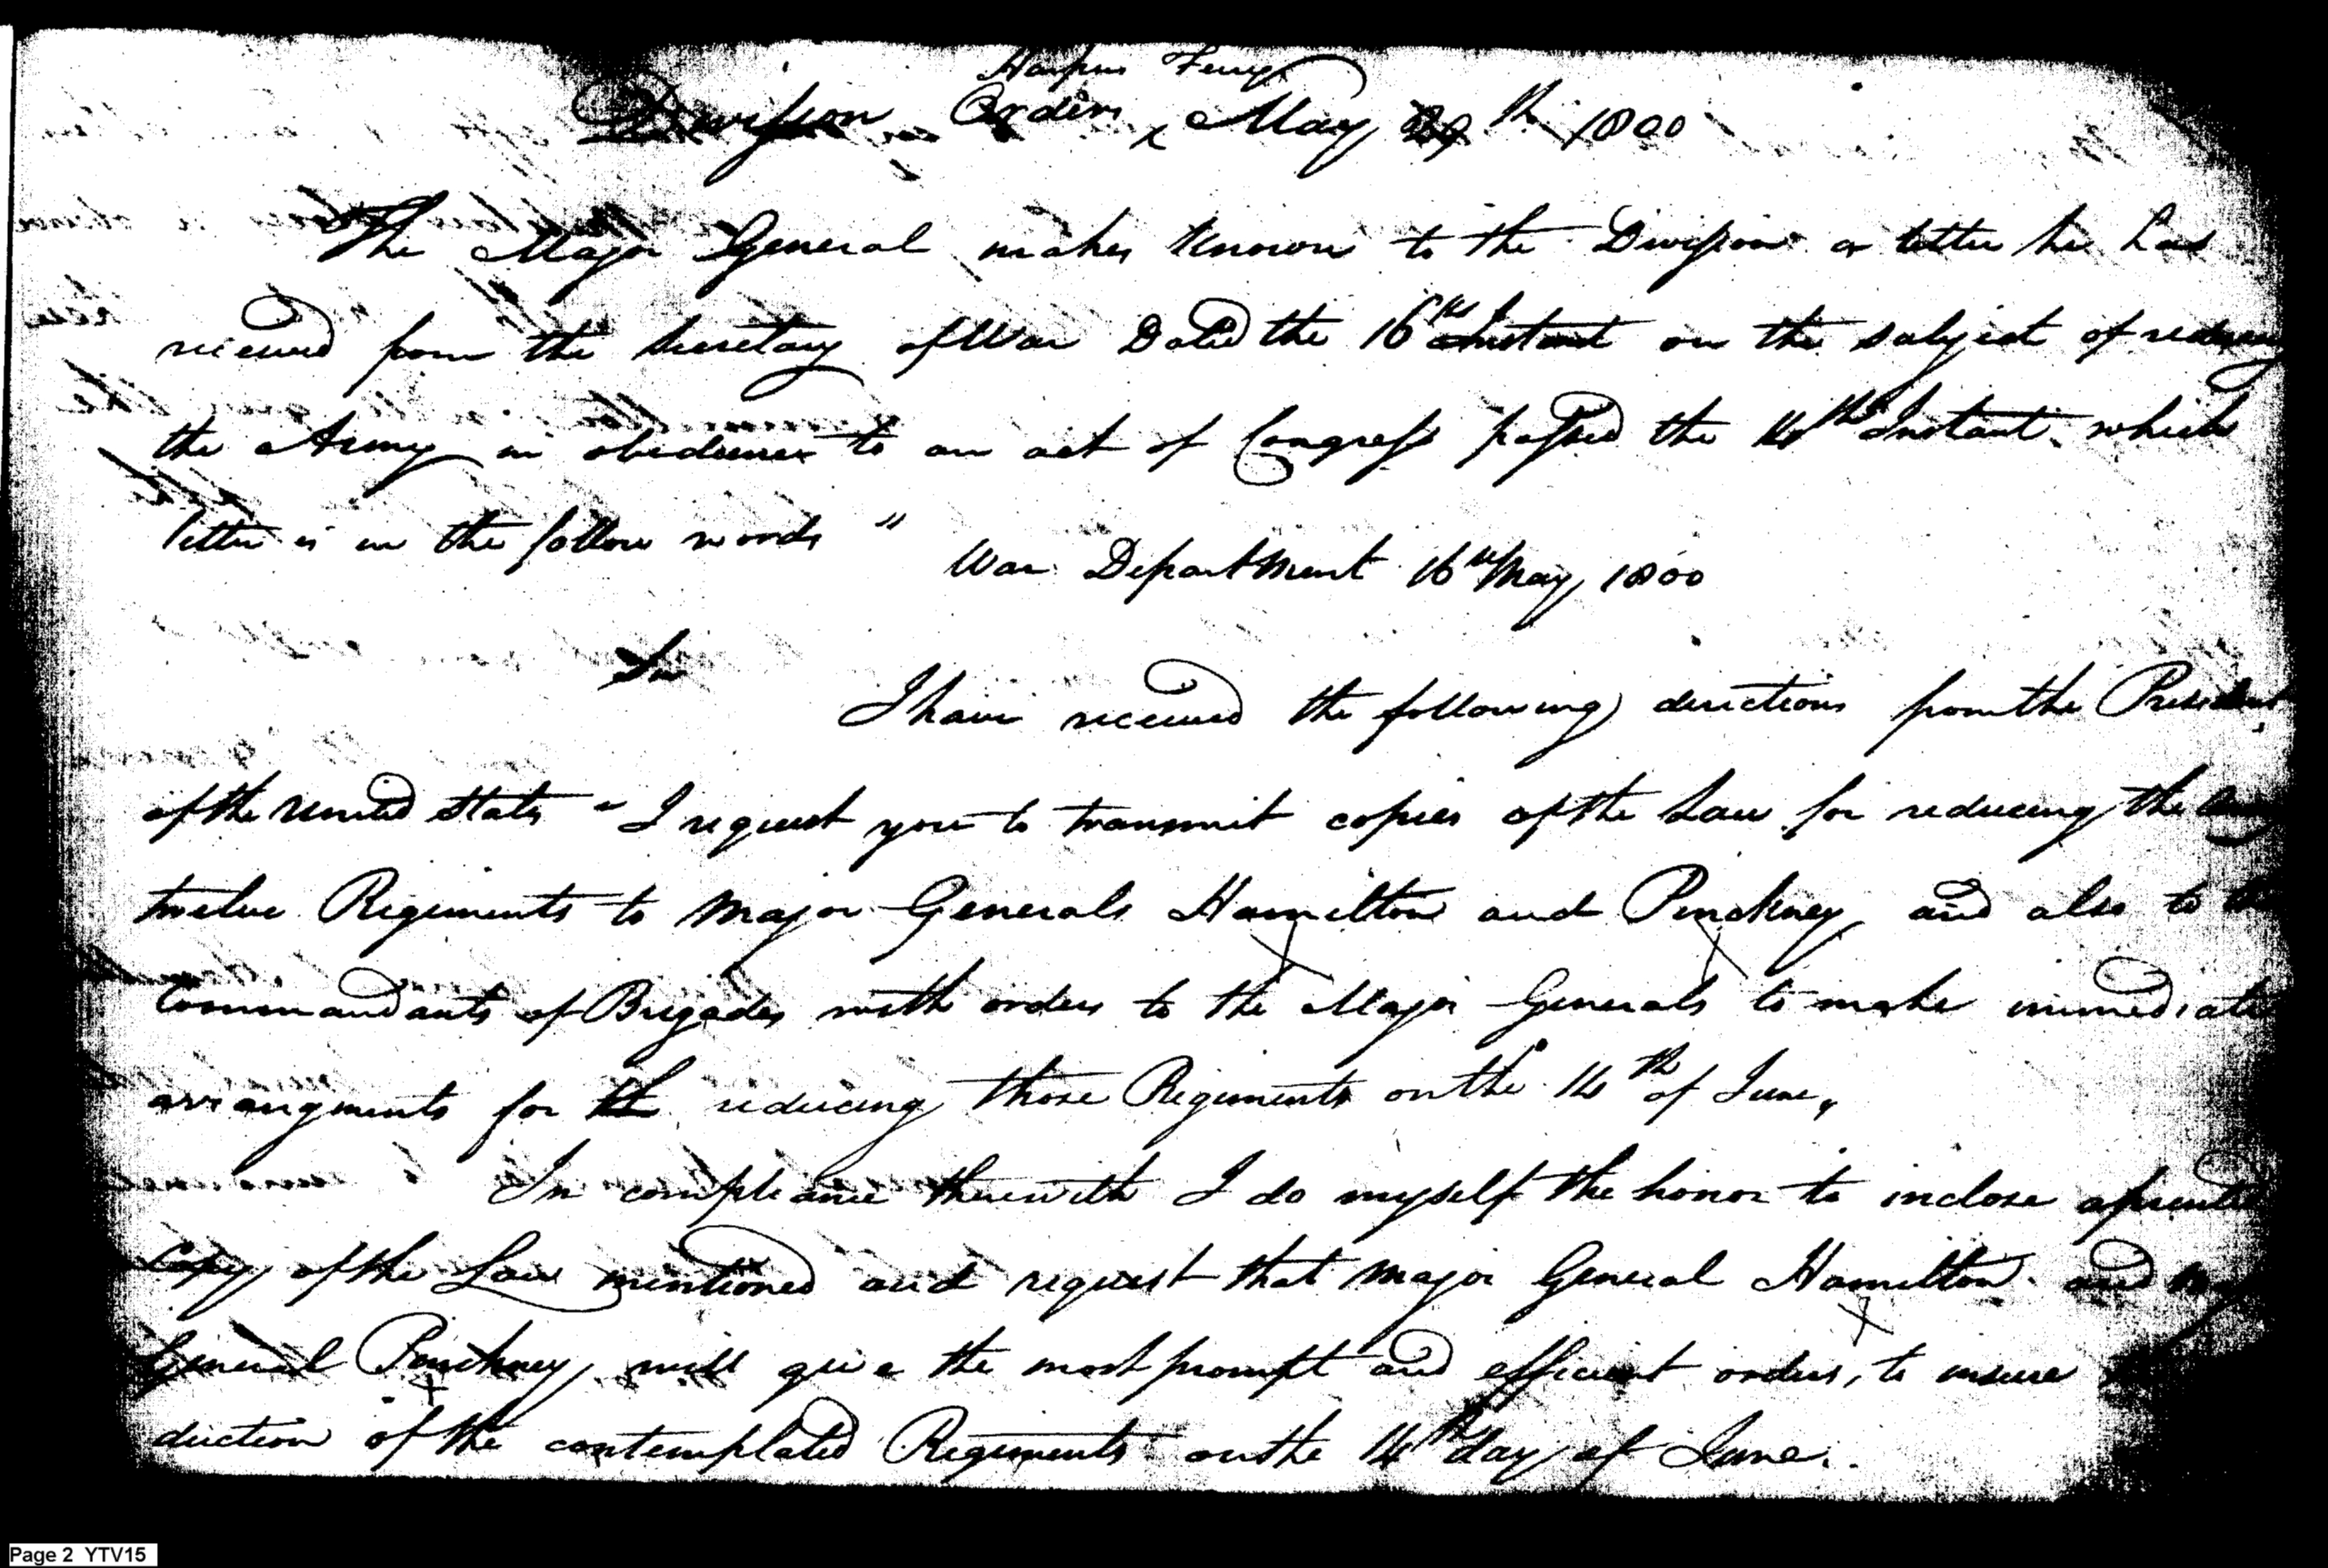 Harpers Ferry
Division Orders, May 29th 1800
The Major General makes known to the Division a letter he has
received from the Secretary of War Dated the 16th Instant on the subject of reducing
the Army in obedience to an act of Congress passed the 14th Instant. which
letter is in the follow words "
War Department 16th May 1800
Sir
I have received the following directions from the President
of the United States "I request you to transmit copies of the Law for reducing the
twelve Regiments to Major Generals Hamilton and Pinckney, and also to the
Commandants of Brigades with orders to the Major Generals to make immediate
arrangments for reducing those Regiments on the 14th of June,
In compliance therewith I do myself the honor to inclose a printed
Copy of the Law mentioned and request that Major General Hamilton and
General Pinckney will give the most prompt and efficient orders, to insure
duction of the contemplated Regiments on the 14th day of June.
Page 2 YTV15